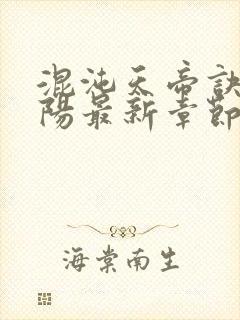 混沌天帝诀
陽最新章節
海棠南生